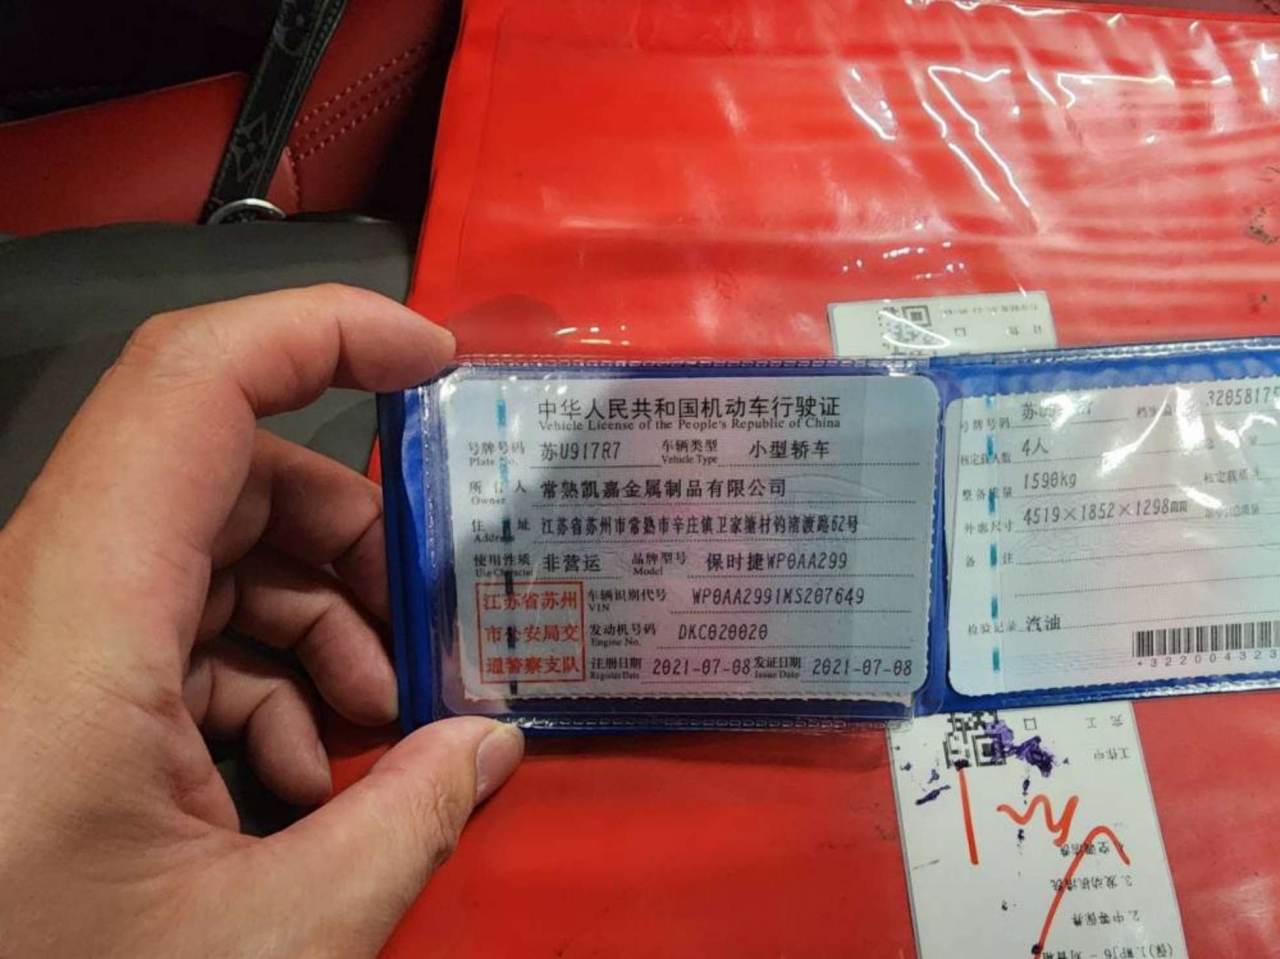 中华人民共和国机动车行驶证
Vehicle License of the People's Republic of China
号牌号码 苏U917R7 车辆类型 小型轿车
Plate No. Vehicle Type
所有人 常熟凯嘉金属制品有限公司
Owner
住址 江苏省苏州市常熟市辛庄镇卫家塘村钓渚渡路62号
Address
使用性质 非营运 品牌型号 保时捷WP0AA299
Use Character Model
江苏省苏州市公安局交通警察支队
车辆识别代号 WP0AA2991MS207649
VIN
发动机号码 DKC020020
Engine No.
注册日期 2021-07-08 发证日期 2021-07-08
Register Date Issue Date
号牌号码
核定载人数 4人
整备质量 1590kg
外廓尺寸 4519×1852×1298mm
备注
检验记录 汽油
完工
工作中
3. 发动机清洗
2. 中等保养